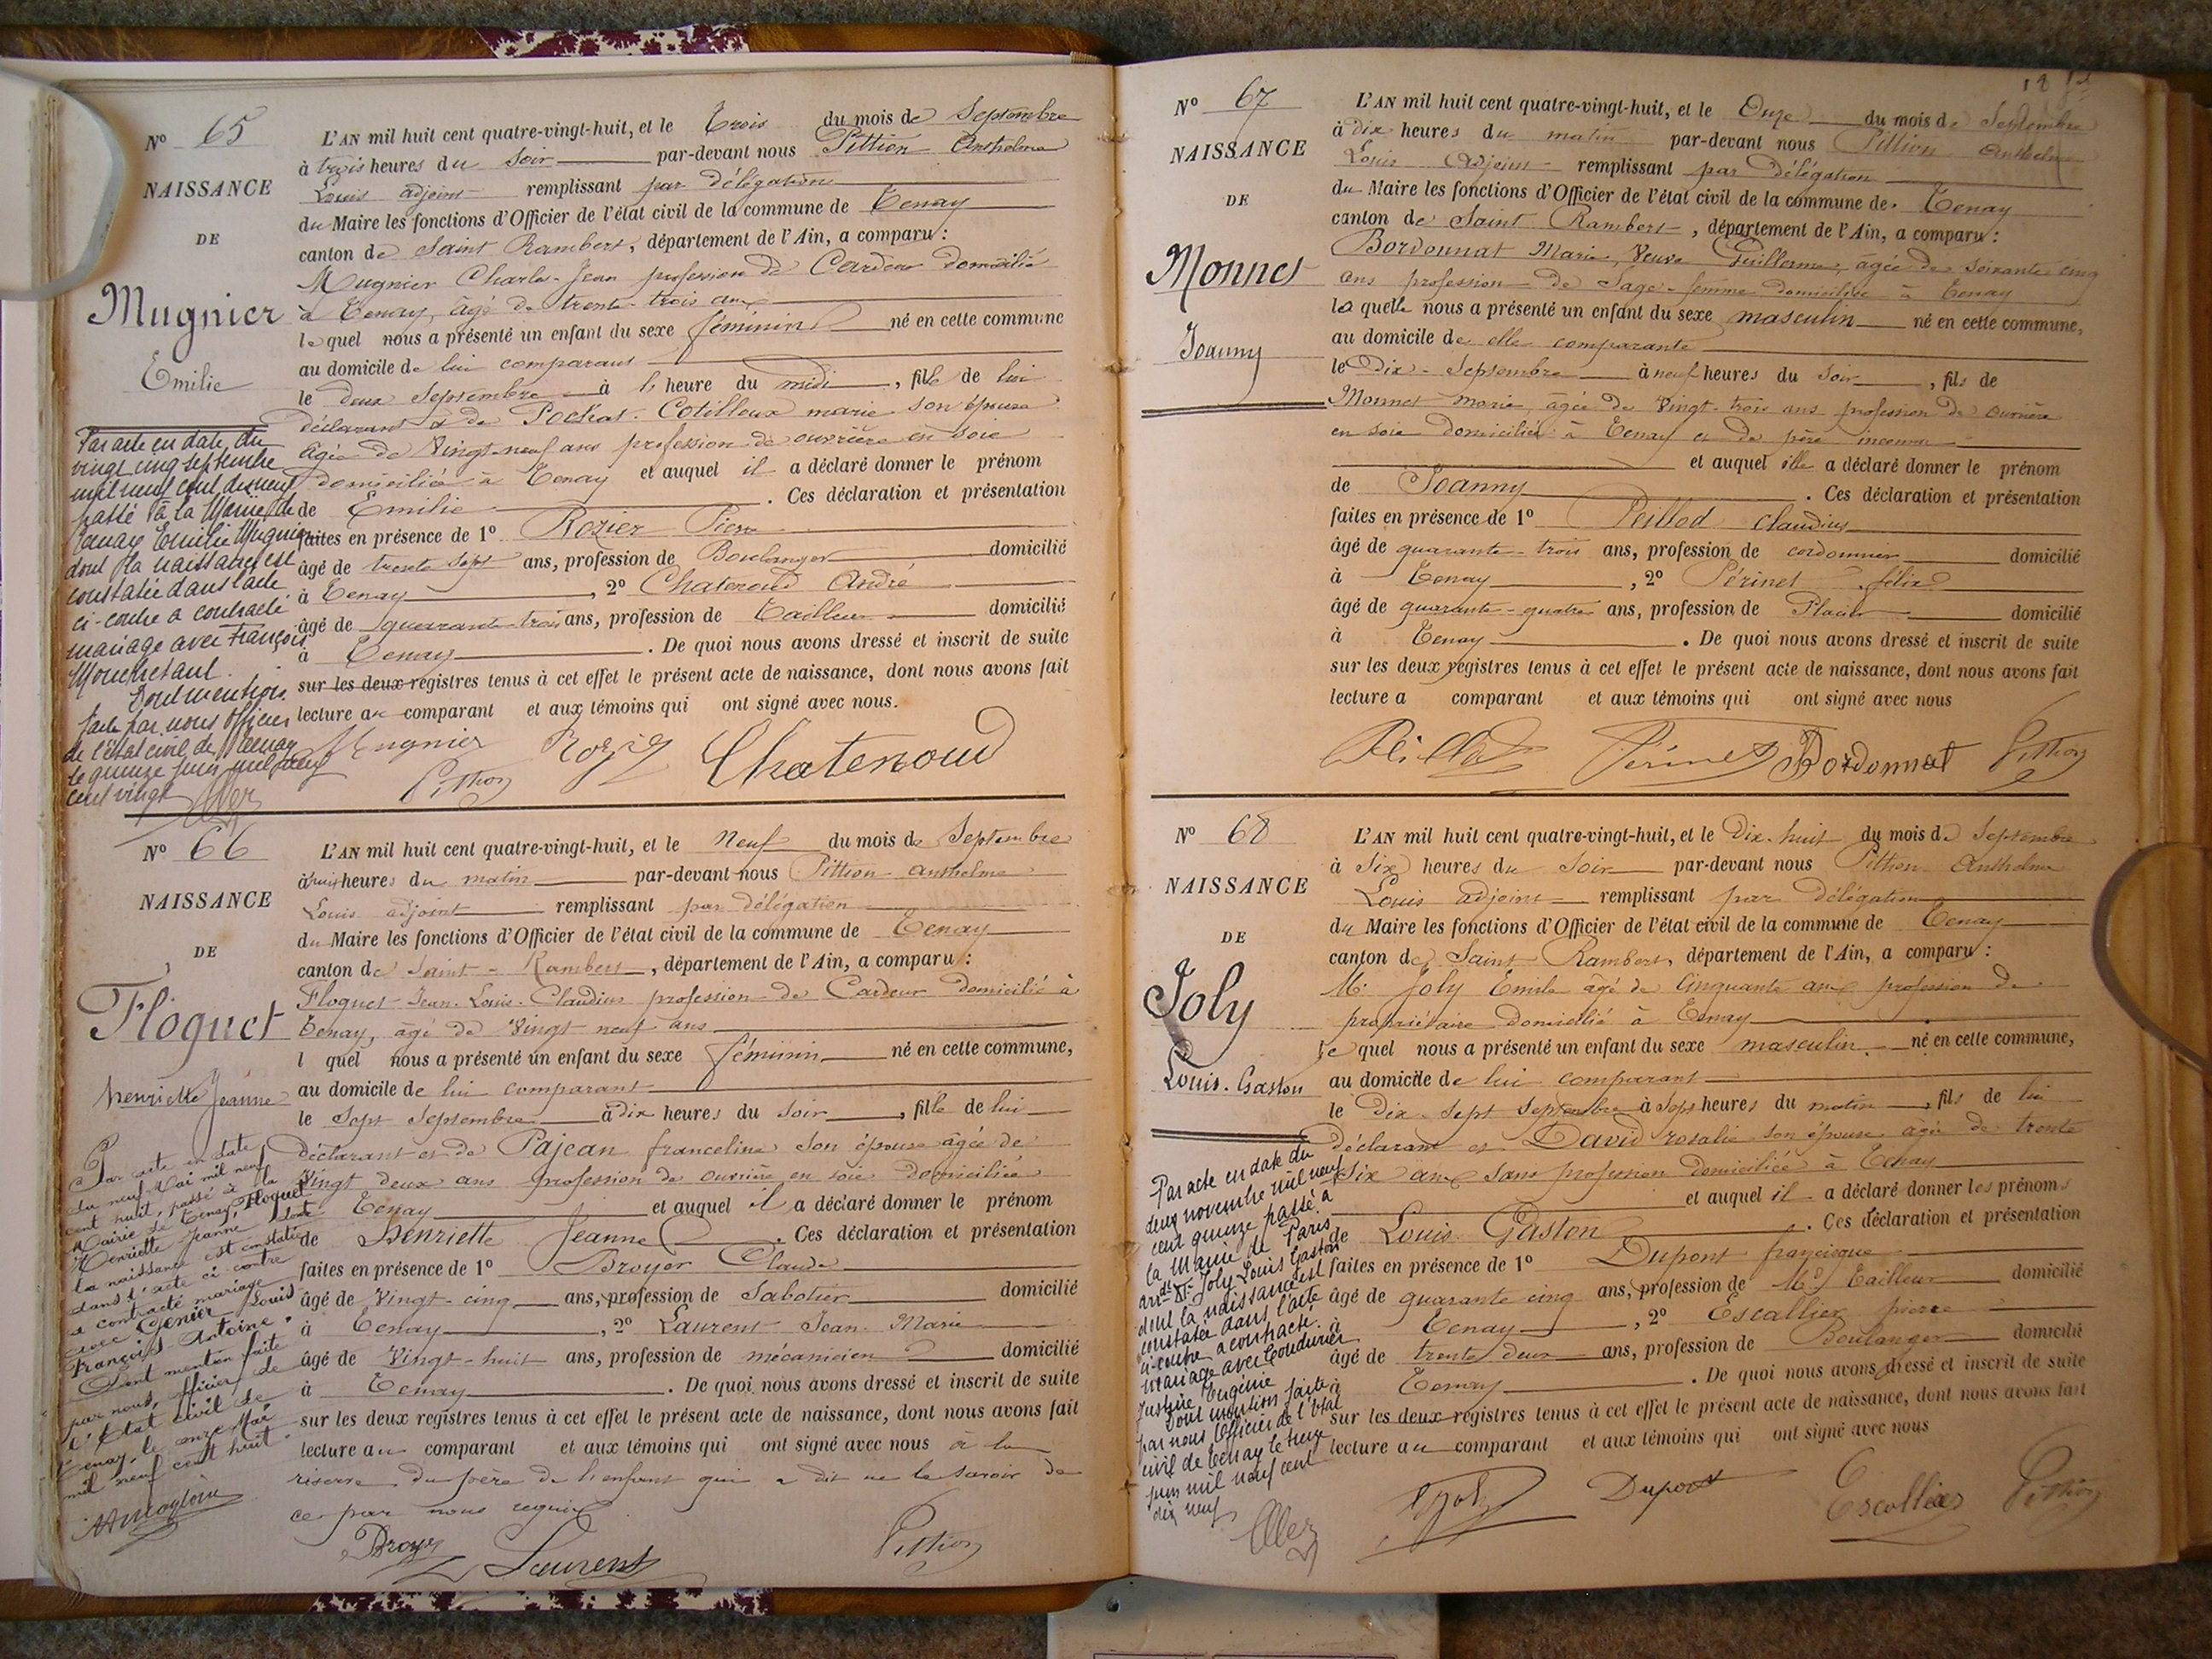 N° 65
NAISSANCE
DE
Mugnier
Emilie
L'AN mil huit cent quatre-vingt-huit, et le Trois du mois de Septembre
à trois heures du Soir par-devant nous Pittion Anthelme
Louis adjoint remplissant par délégation
du Maire les fonctions d'Officier de l'état civil de la commune de Tenay
canton de Saint Rambert, département de l'Ain, a comparu :
Mugnier Charles-Jean profession de Cardeur domicilié
à Tenay, âgé de trente-trois ans
le quel nous a présenté un enfant du sexe féminin né en cette commune
au domicile de lui comparant
le deux Septembre à heure du midi, fille de lui
déclarant & de Pochat-Cotilloux marie son épouse
âgée de Vingt-neuf ans profession de ouvrière en soie
domiciliée à Tenay et auquel il a déclaré donner le prénom
de Emilie. Ces déclaration et présentation
faites en présence de 1° Rozier Pierre
âgé de trente sept ans, profession de Boulanger domicilié
à Tenay, 2° Chatenoud André
âgé de quarante-trois ans, profession de Tailleur domicilié
à Tenay. De quoi nous avons dressé et inscrit de suite
sur les deux registres tenus à cet effet le présent acte de naissance, dont nous avons fait
lecture au comparant et aux témoins qui ont signé avec nous.
Mugnier Chatenoud
Pittion
Par acte en date du
vingt cinq septembre
mil neuf cent dix neuf
passé à la Mairie de
Tenay Emilie Mugnier
dont la naissance est
constatée dans l'acte
ci-contre a contracté
mariage avec François
Dont mention
faite par nous Officier
de l'état civil de Tenay
le quinze juin mil neuf
cent vingt
N° 66
NAISSANCE
DE
Floquet
henriette Jeanne
L'AN mil huit cent quatre-vingt-huit, et le Neuf du mois de Septembre
à huit heures du matin par-devant nous Pittion anthelme
Louis adjoint remplissant par délégation
du Maire les fonctions d'Officier de l'état civil de la commune de Tenay
canton de Saint-Rambert, département de l'Ain, a comparu :
Floquet Jean-Louis-Claudius profession de Cardeur domicilié à
Tenay, âgé de Vingt neuf ans
l quel nous a présenté un enfant du sexe féminin né en cette commune,
au domicile de lui comparant
le Sept Septembre à dix heures du Soir, fille de lui
déclarant et de Pajean franceline son épouse âgée de
Vingt deux ans profession de ouvrière en soie domiciliée
Tenay et auquel il a déclaré donner le prénom
de Henriette Jeanne. Ces déclaration et présentation
faites en présence de 1° Broyer Claude
âgé de Vingt-cinq ans, profession de Sabotier domicilié
à Tenay, 2° Laurent Jean-Marie
âgé de Vingt-huit ans, profession de mécanicien domicilié
à Tenay. De quoi nous avons dressé et inscrit de suite
sur les deux registres tenus à cet effet le présent acte de naissance, dont nous avons fait
lecture au comparant et aux témoins qui ont signé avec nous à la
réserve du père de l'enfant qui a dit ne le savoir de
ce par nous requis
Broyer Laurent Pittion
Par acte en date
du neuf Mai mil neuf
cent huit, passé à la
Mairie de Tenay, Floquet
Henriette Jeanne dont
la naissance est constatée
dans l'acte ci-contre
a contracté mariage
avec Genier Louis
François-Antoine.
Dont mention faite
par nous, officier de
l'état civil de
Tenay, le onze Mai
mil neuf cent huit.
N° 67
NAISSANCE
DE
Monnet
Joanny
L'AN mil huit cent quatre-vingt-huit, et le Onze du mois de Septembre
à dix heures du matin par-devant nous Pittion Anthelme
Louis Adjoint remplissant par délégation
du Maire les fonctions d'Officier de l'état civil de la commune de Tenay
canton de Saint Rambert, département de l'Ain, a comparu :
Bordonnat Marie, Veuve Guillerme, âgée de soixante cinq
ans profession de Sage-femme domiciliée à Tenay
la quelle nous a présenté un enfant du sexe masculin né en cette commune,
au domicile de elle comparante
le Dix-Septembre à neuf heures du Soir, fils de
Monnet marie, âgée de Vingt-trois ans profession de ouvrière
en soie domiciliée à Tenay et de père inconnu
et auquel elle a déclaré donner le prénom
de Joanny. Ces déclaration et présentation
faites en présence de 1° Peillod claudius
âgé de quarante-trois ans, profession de cordonnier domicilié
à Tenay, 2° Périnet félix
âgé de quarante-quatre ans, profession de domicilié
à Tenay. De quoi nous avons dressé et inscrit de suite
sur les deux registres tenus à cet effet le présent acte de naissance, dont nous avons fait
lecture a comparant et aux témoins qui ont signé avec nous
Peillod Périnet Bordonnat Pittion
N° 68
NAISSANCE
DE
Joly
Louis-Gaston
L'AN mil huit cent quatre-vingt-huit, et le Dix-huit du mois de Septembre
à Six heures du Soir par-devant nous Pittion Anthelme
Louis adjoint remplissant par délégation
du Maire les fonctions d'Officier de l'état civil de la commune de Tenay
canton de Saint Rambert, département de l'Ain, a comparu :
Mr Joly Emile âgé de Cinquante ans profession de
propriétaire domicilié à Tenay
le quel nous a présenté un enfant du sexe masculin né en cette commune,
au domicile de lui comparant
le Dix-Sept Septembre à Sept heures du matin, fils de lui
déclarant et David rosalie son épouse âgée de trente
six ans Sans profession domiciliée à Tenay
et auquel il a déclaré donner les prénoms
de Louis Gaston. Ces déclaration et présentation
faites en présence de 1° Dupont francisque
âgé de quarante cinq ans, profession de Md Tailleur domicilié
à Tenay, 2° Escallier pierre
âgé de trente deux ans, profession de Boulanger domicilié
à Tenay. De quoi nous avons dressé et inscrit de suite
sur les deux registres tenus à cet effet le présent acte de naissance, dont nous avons fait
lecture au comparant et aux témoins qui ont signé avec nous
Joly Dupont Escallier Pittion
Par acte en date du
deux novembre mil neuf
cent quinze passé à
la Mairie de Paris
Joly Louis Gaston
dont la naissance est
constatée dans l'acte
ci-contre a contracté
mariage avec Coudurier
Justine Eugénie
Dont mention faite
par nous Officier de l'état
civil de Tenay le treize
juin mil neuf cent
dix neuf